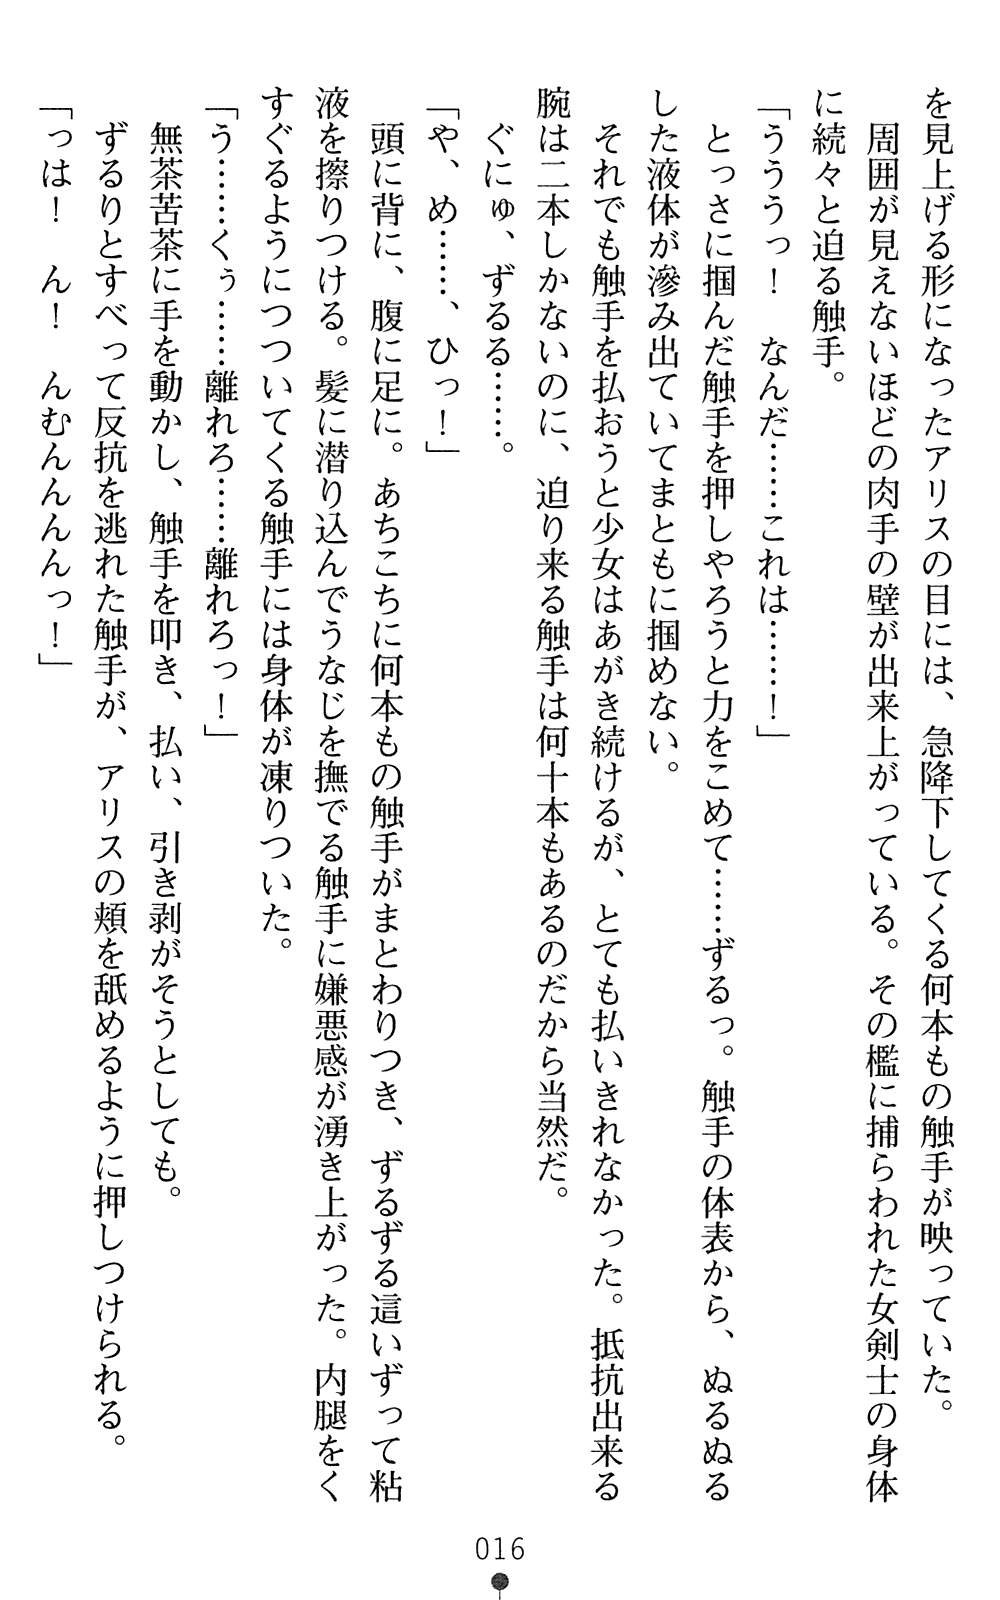 を見上げる形になったアリスの目には、急降下してくる何本もの触手が映っていた。
　周囲が見えないほどの肉手の壁が出来上がっている。その檻に捕らわれた女剣士の身体
に続々と迫る触手。
「うううっ！　なんだ……これは……！」
　とっさに掴んだ触手を押しやろうと力をこめて……ずるっ。触手の体表から、ぬるぬる
した液体が滲み出ていてまともに掴めない。
　それでも触手を払おうと少女はあがき続けるが、とても払いきれなかった。抵抗出来る
腕は二本しかないのに、迫り来る触手は何十本もあるのだから当然だ。
　ぐにゅ、ずるる……。
「や、め……、ひっ！」
　頭に背に、腹に足に。あちこちに何本もの触手がまとわりつき、ずるずる這いずって粘
液を擦りつける。髪に潜り込んでうなじを撫でる触手に嫌悪感が湧き上がった。内腿をく
すぐるようにつついてくる触手には身体が凍りついた。
「う……くぅ……離れろ……離れろっ！」
　無茶苦茶に手を動かし、触手を叩き、払い、引き剥がそうとしても。
　ずるりとすべって反抗を逃れた触手が、アリスの頬を舐めるように押しつけられる。
「っは！　ん！　んむんんんんっ！」
016